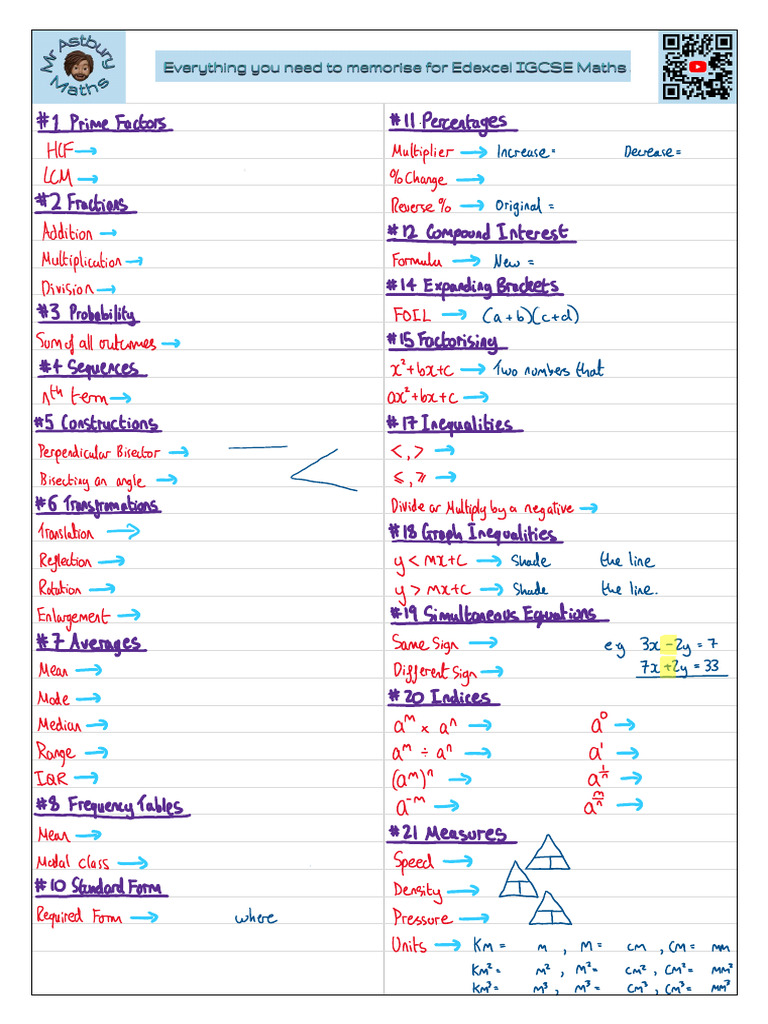 Mr Astbury Maths
Everything you need to memorise for Edexcel IGCSE Maths
#1 Prime Factors
HCF →
LCM →
#2 Fractions
Addition →
Multiplication →
Division →
#3 Probability
Sum of all outcomes →
#4 Sequences
nᵗʰ term →
#5 Constructions
Perpendicular Bisector →
Bisecting an angle →
#6 Transfromations
Translation →
Reflection →
Rotation →
Enlargement →
#7 Averages
Mean →
Mode →
Median →
Range →
IQR →
#8 Frequency Tables
Mean →
Modal class →
#10 Standard Form
Required Form → where
#11 Percentages
Multiplier → Increase = Decrease =
% Change →
Reverse % → Original =
#12 Compound Interest
Formula → New =
#14 Expanding Brackets
FOIL → (a+b)(c+d)
#15 Factorising
x²+bx+c → Two numbers that
ax²+bx+c →
#17 Inequalities
<, > →
⩽, ⩾ →
Divide or Multiply by a negative →
#18 Graph Inequalities
y < mx+c → Shade the line
y > mx+c → Shade the line.
#19 Simultaneous Equations
Same Sign → eg 3x - 2y = 7
Different Sign → 7x + 2y = 33
#20 Indices
aᵐ × aⁿ → a⁰ →
aᵐ ÷ aⁿ → a¹ →
(aᵐ)ⁿ → a^(1/n) →
a⁻ᵐ → a^(m/n) →
#21 Measures
Speed →
Density →
Pressure →
Units → Km = m, m = cm, cm = mm
Km² = m², m² = cm², cm² = mm²
Km³ = m³, m³ = cm³, cm³ = mm³